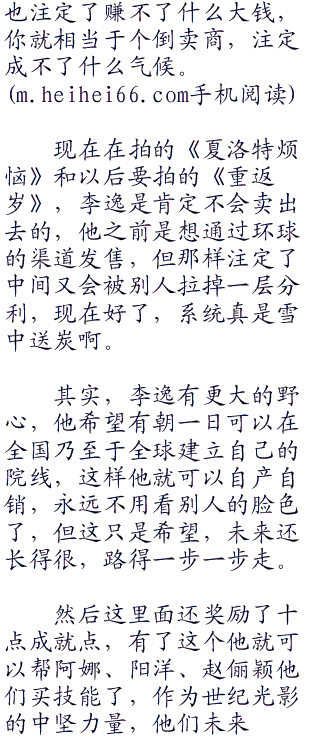 也注定了赚不了什么大钱，
你就相当于个倒卖商，注定
成不了什么气候。
(m.heihei66.com手机阅读)
现在在拍的《夏洛特烦
恼》和以后要拍的《重返
岁》，李逸是肯定不会卖出
去的，他之前是想通过环球
的渠道发售，但那样注定了
中间又会被别人拉掉一层分
利，现在好了，系统真是雪
中送炭啊。
其实，李逸有更大的野
心，他希望有朝一日可以在
全国乃至于全球建立自己的
院线，这样他就可以自产自
销，永远不用看别人的脸色
了，但这只是希望，未来还
长得很，路得一步一步走。
然后这里面还奖励了十
点成就点，有了这个他就可
以帮阿娜、阳洋、赵俪颖他
们买技能了，作为世纪光影
的中坚力量，他们未来